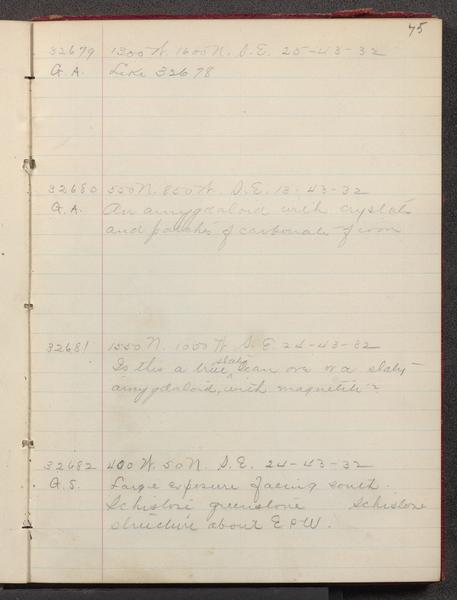 75
32679 1300 W. 1600 N. S.E. 25-43-32
G.A. Like 32678
32680 550 N. 850 W. S.E. 13-43-32
G.A. An amygdaloid with crystals
and patches of carbonate of iron
32681 1550 N. 1000 W S.E. 24-43-32
slaty
Is this a true lean ore or a slaty
amygdaloid, with magnetite?
32682 400 W. 50 N. S.E. 24-43-32
G.S. Large exposure facing south.
Schistose greenstone Schistose
structure about E & W.